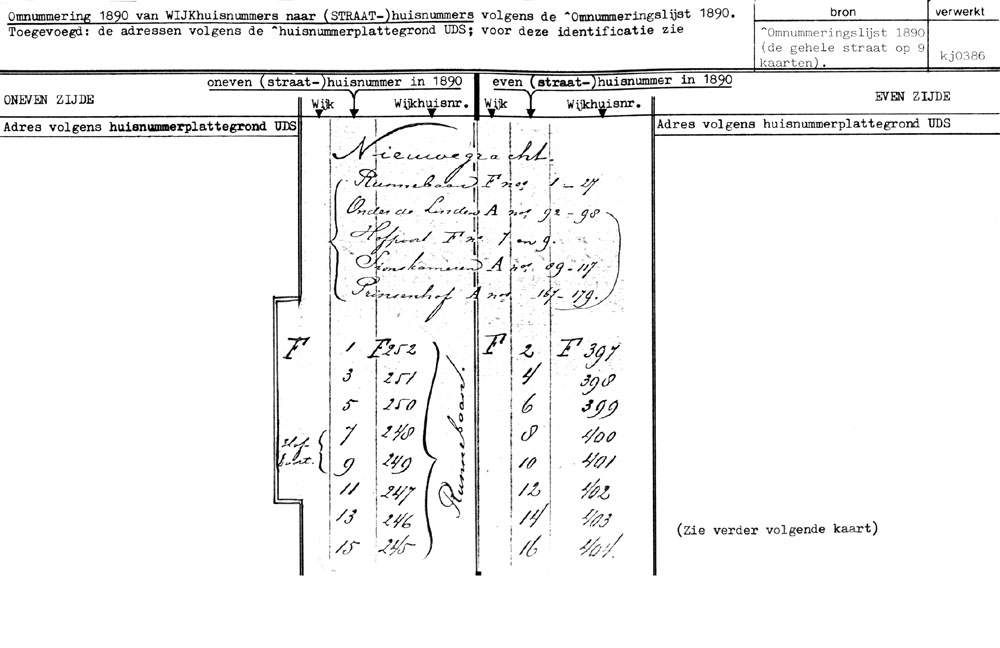 Omnummering 1890 van WIJKhuisnummers naar (STRAAT-)huisnummers volgens de ^Omnummeringslijst 1890.
Toegevoegd: de adressen volgens de ^huisnummerplattegrond UDS; voor deze identificatie zie
bron
verwerkt
^Omnummeringslijst 1890
(de gehele straat op 9
kaarten).
kj0386
oneven (straat-)huisnummer in 1890
even (straat-)huisnummer in 1890
ONEVEN ZIJDE
Wijk Wijkhuisnr. Wijk Wijkhuisnr.
EVEN ZIJDE
Adres volgens huisnummerplattegrond UDS
Adres volgens huisnummerplattegrond UDS
Nieuwegracht.
Runnebaan F nos 1 - 27
Onder de Linden A nos 92 - 98
Hofpoort F no 7 en 9.
Sionskameren A nos 89 - 117
Prinsenhof A nos 167 - 179.
F 1 F 252 F 2 F 397
3 251 4 398
5 250 6 399
7 248 8 400
9 249 10 401
11 247 12 402
13 246 14 403
15 245 16 404.
Hof-
poort.
Runnebaan.
(Zie verder volgende kaart)